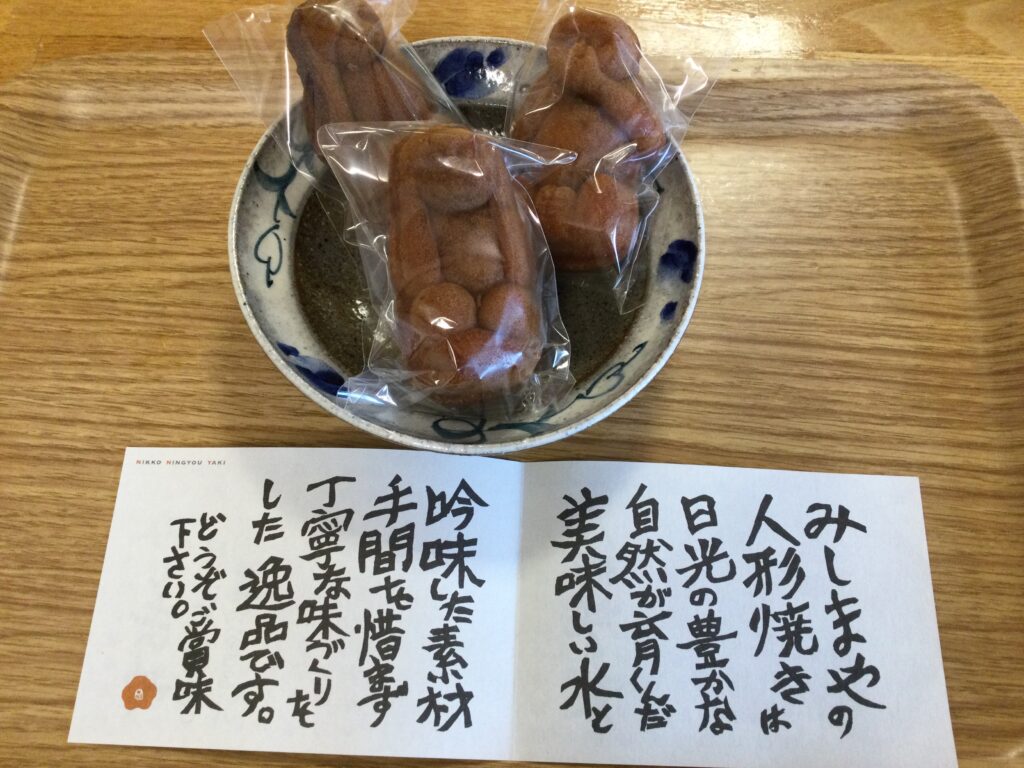 みしまやの
人形焼きは
日光の豊かな
自然が育くんだ
美味しい水と
吟味した素材
手間を惜まず
丁寧な味づくりを
した逸品です。
どうぞご賞味
下さい。
NIKKO NINGYOU YAKI